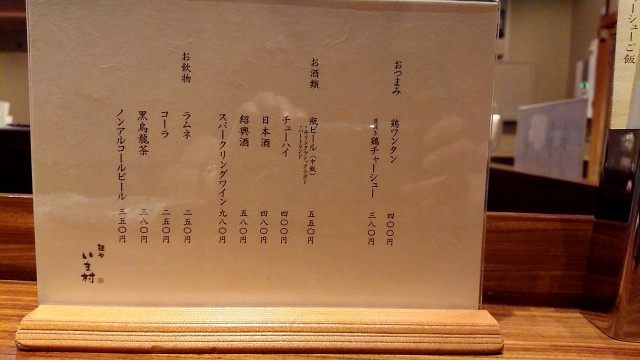 おつまみ
鶏ワンタン 四〇〇円
鶏チャーシュー 三八〇円
お酒類
瓶ビール（中瓶） 五五〇円
チューハイ 四〇〇円
日本酒 四八〇円
紹興酒 五八〇円
スパークリングワイン 九八〇円
お飲物
ラムネ 二五〇円
コーラ 二五〇円
黒烏龍茶 三八〇円
ノンアルコールビール 三五〇円
麺や
いま村
ーシューご飯